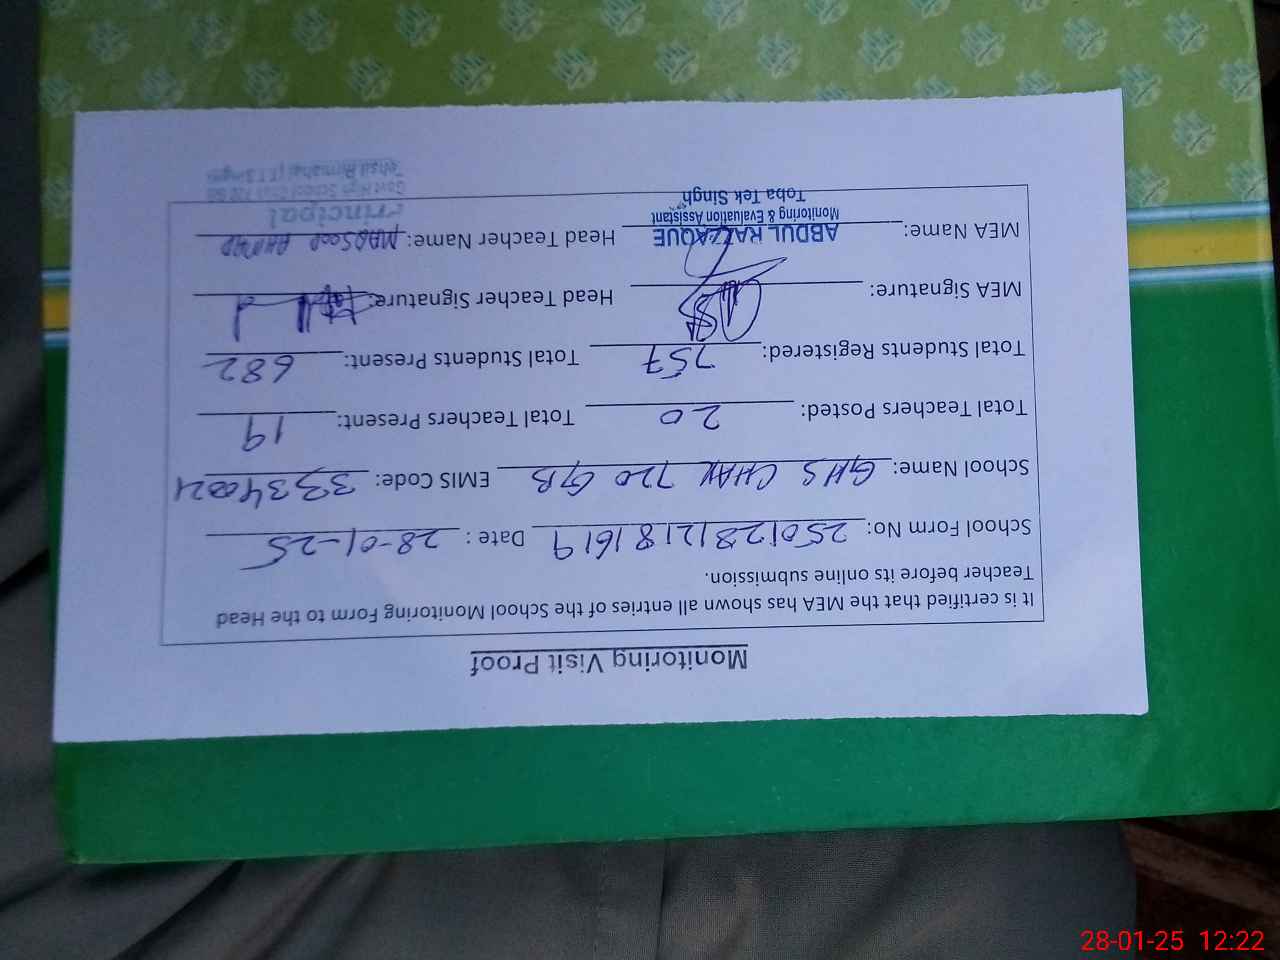 Monitoring Visit Proof
It is certified that the MEA has shown all entries of the School Monitoring Form to the Head
Teacher before its online submission.
School Form No: 25012812181619 Date : 28-01-25
School Name: GHS CHAK 720 GB EMIS Code: 33340021
Total Teachers Posted: 20 Total Teachers Present: 19
Total Students Registered: 757 Total Students Present: 682
MEA Signature: Head Teacher Signature:
MEA Name: ABDUL RAZZAQUE Head Teacher Name: MAQSOOD AHMAD
Monitoring & Evaluation Assistant
Toba Tek Singh
Principal
Govt High School
28-01-25 12:22